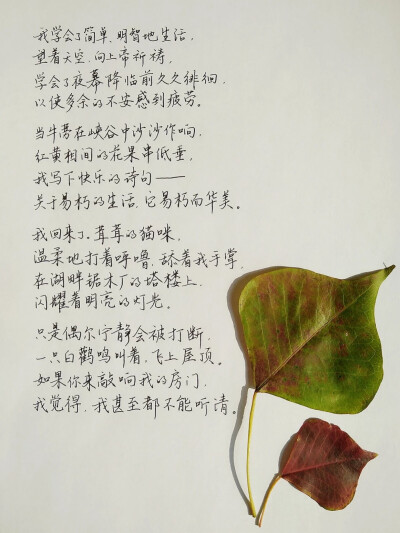 我学会了简单、明智地生活，
望着天空，向上帝祈祷，
学会了夜幕降临前久久徘徊，
以使多余的不安感到疲劳。
当牛蒡在峡谷中沙沙作响，
红黄相间的花果串低垂，
我写下快乐的诗句——
关于易朽的生活，它易朽而华美。
我回来了。茸茸的猫咪，
温柔地打着呼噜，舔着我手掌，
在湖畔锯木厂的塔楼上，
闪耀着明亮的灯光。
只是偶尔宁静会被打断，
一只白鹳鸣叫着，飞上屋顶。
如果你来敲响我的房门，
我觉得，我甚至都不能听清。